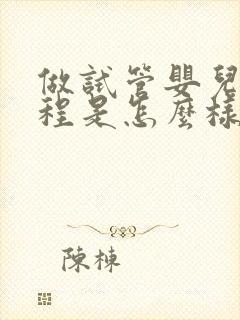 做試管嬰兒
程是怎麼樣
陳棟